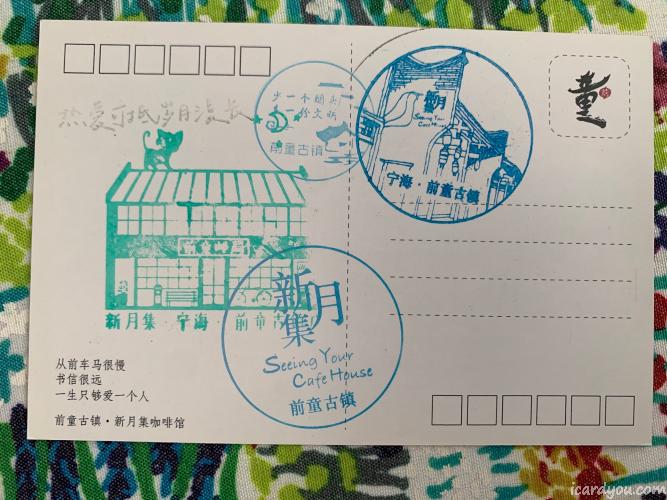 热爱可抵岁月漫长
少一个烟头
多一份文明
前童古镇
新月
Seeing Your
Cafe House
宁海·前童古镇
童
前童邮局
新月集·宁海·前童古
新月集
Seeing Your
Cafe House
前童古镇
从前车马很慢
书信很远
一生只够爱一个人
前童古镇·新月集咖啡馆
icardyou.com